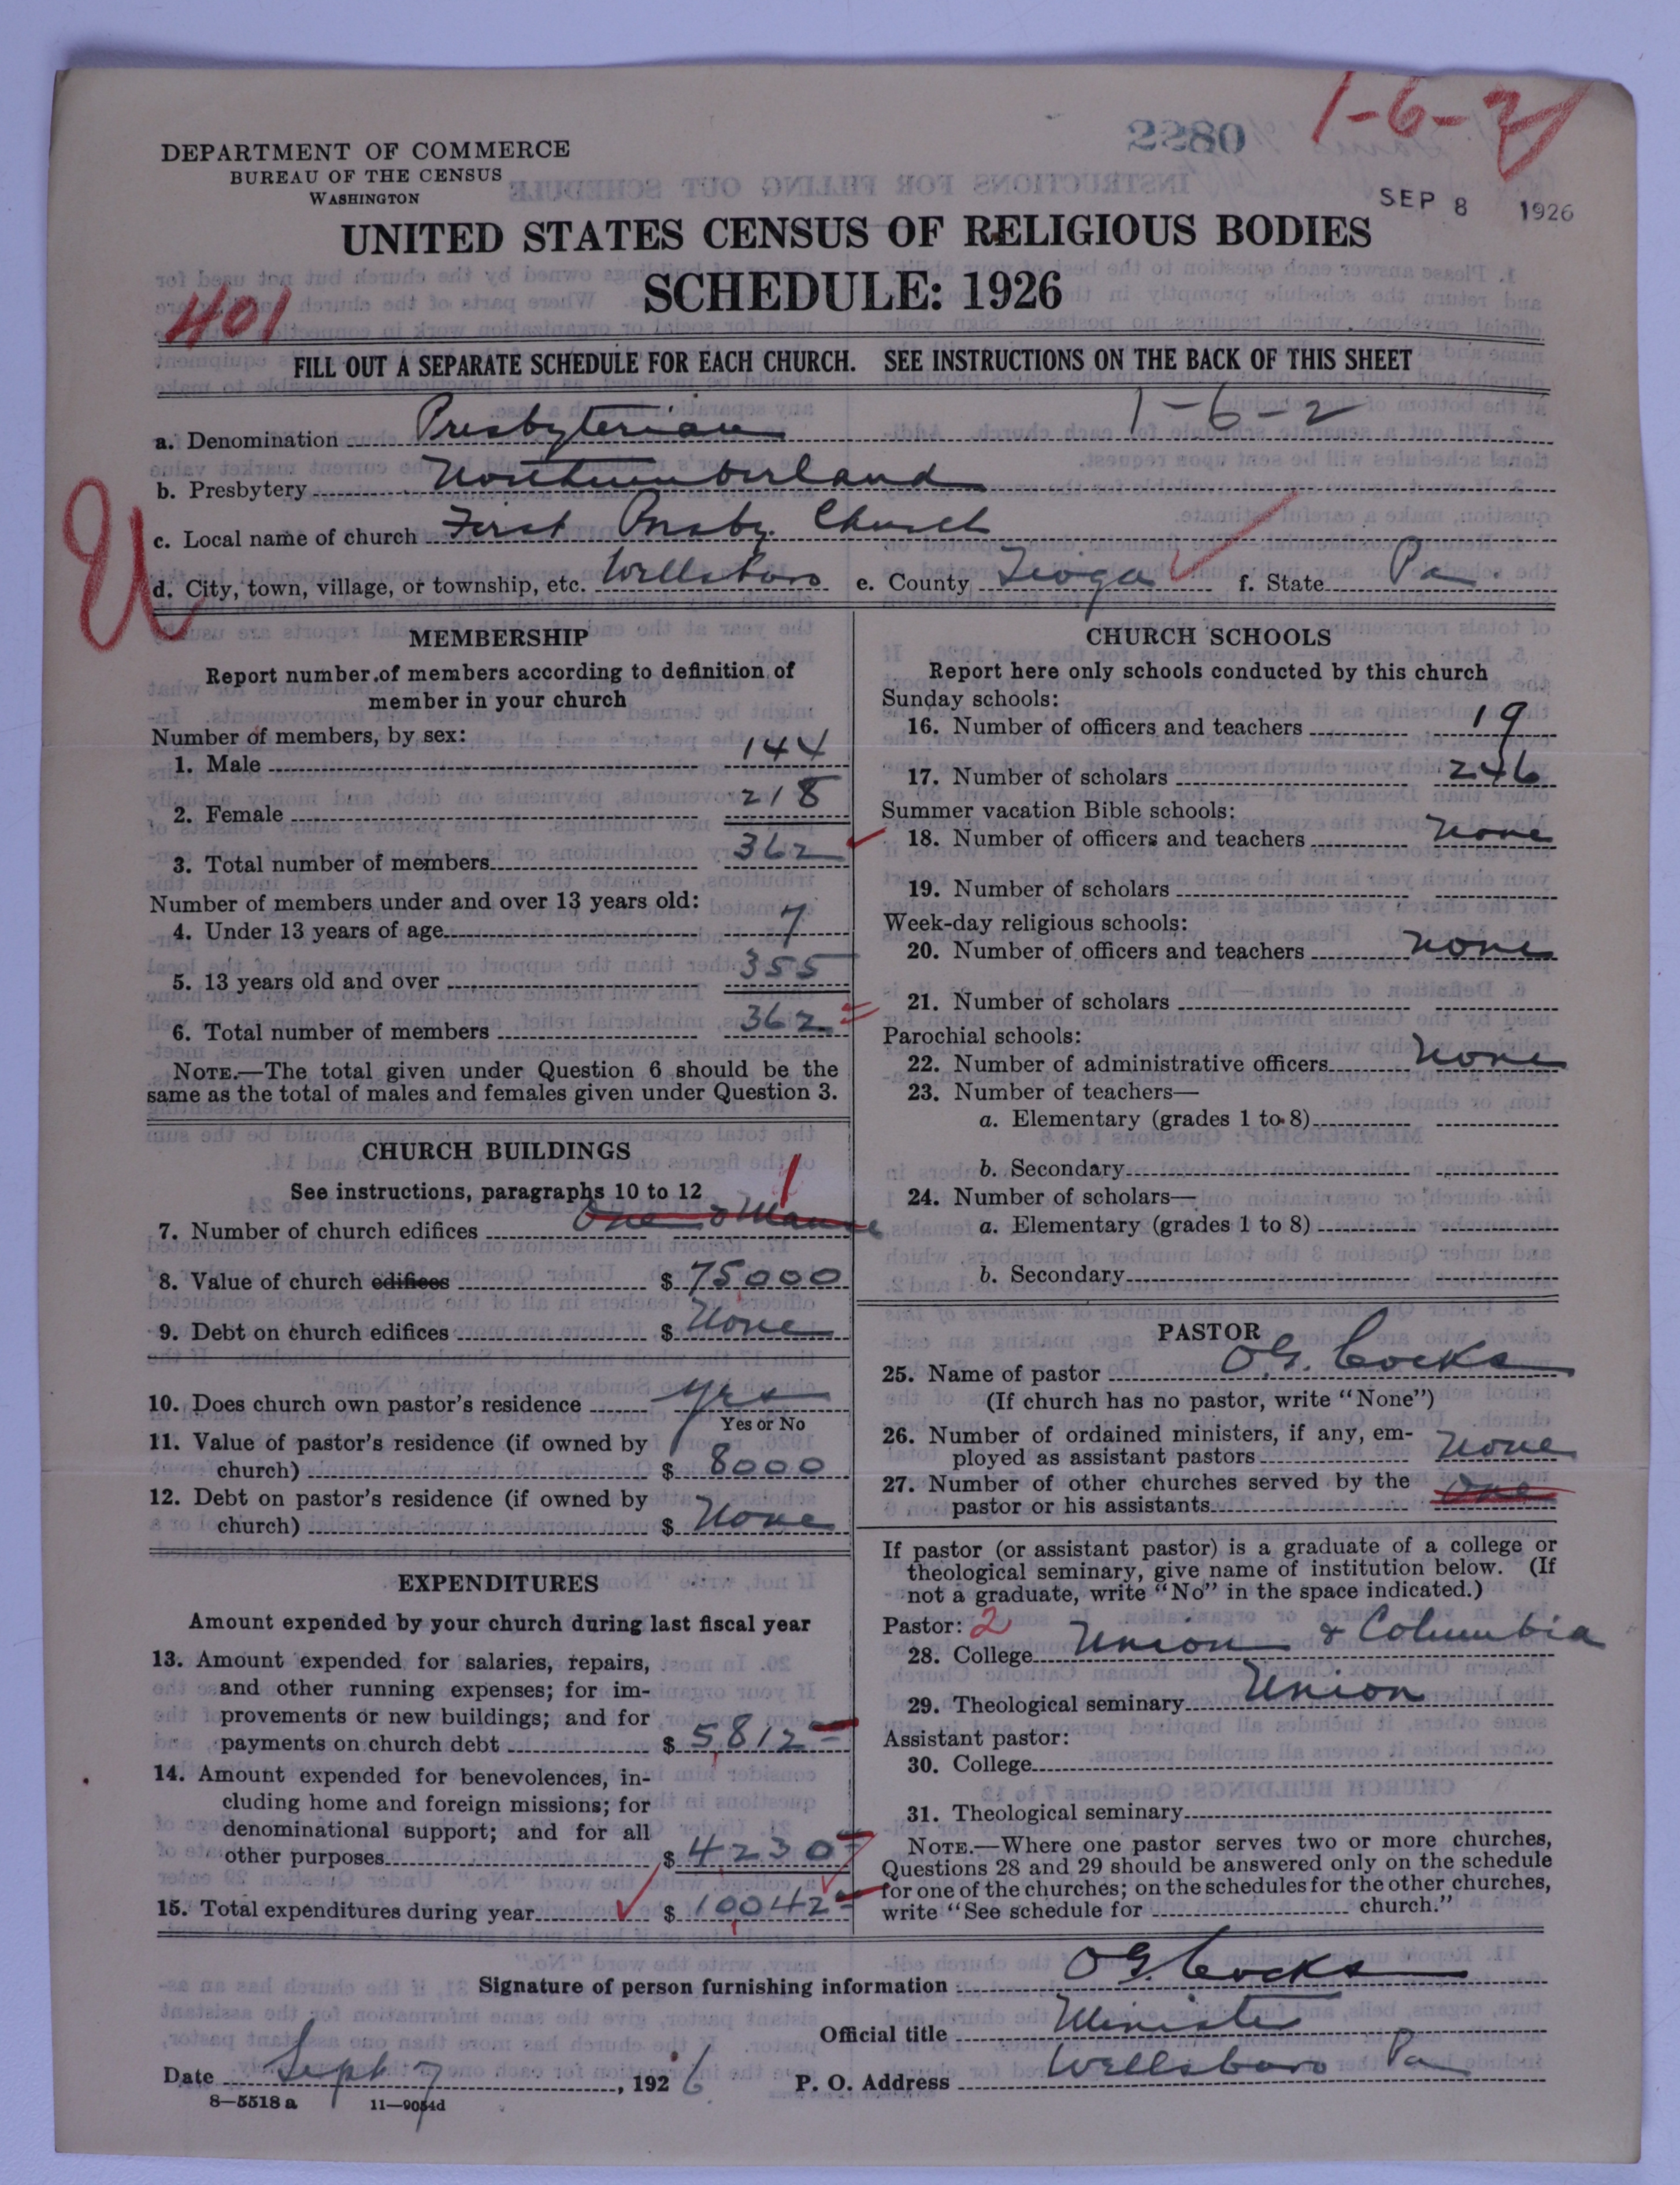 1-6-2
2280
DEPARTMENT OF COMMERCE
BUREAU OF THE CENSUS
WASHINGTON
SEP 8 1926
UNITED STATES CENSUS OF RELIGIOUS BODIES
SCHEDULE: 1926
401
FILL OUT A SEPARATE SCHEDULE FOR EACH CHURCH. SEE INSTRUCTIONS ON THE BACK OF THIS SHEET
1-6-2
a. Denomination Presbyterian
b. Presbytery Northumberland
c. Local name of church First Presby. Church
U
d. City, town, village, or township, etc. Wellsboro e. County Tioga f. State Pa.
MEMBERSHIP
Report number of members according to definition of
member in your church
Number of members, by sex:
1. Male 144
2. Female 218
3. Total number of members 362
Number of members under and over 13 years old:
4. Under 13 years of age 7
5. 13 years old and over 355
6. Total number of members 362
NOTE.—The total given under Question 6 should be the
same as the total of males and females given under Question 3.
CHURCH BUILDINGS
See instructions, paragraphs 10 to 12
1
7. Number of church edifices One & Manse
8. Value of church edifices $ 75000
9. Debt on church edifices $ None
10. Does church own pastor's residence yes
Yes or No
11. Value of pastor's residence (if owned by
church) $ 8000
12. Debt on pastor's residence (if owned by
church) $ None
EXPENDITURES
Amount expended by your church during last fiscal year
13. Amount expended for salaries, repairs,
and other running expenses; for im-
provements or new buildings; and for
payments on church debt $ 5812
14. Amount expended for benevolences, in-
cluding home and foreign missions; for
denominational support; and for all
other purposes $ 4230
15. Total expenditures during year $ 10042
CHURCH SCHOOLS
Report here only schools conducted by this church
Sunday schools:
16. Number of officers and teachers 19
17. Number of scholars 246
Summer vacation Bible schools:
18. Number of officers and teachers None
19. Number of scholars
Week-day religious schools:
20. Number of officers and teachers none
21. Number of scholars
Parochial schools:
22. Number of administrative officers None
23. Number of teachers—
a. Elementary (grades 1 to 8)
b. Secondary
24. Number of scholars—
a. Elementary (grades 1 to 8)
b. Secondary
PASTOR
25. Name of pastor O.G. Cocks
(If church has no pastor, write "None")
26. Number of ordained ministers, if any, em-
ployed as assistant pastors None
27. Number of other churches served by the
pastor or his assistants One
If pastor (or assistant pastor) is a graduate of a college or
theological seminary, give name of institution below. (If
not a graduate, write "No" in the space indicated.)
Pastor: 2
28. College Union & Columbia
29. Theological seminary Union
Assistant pastor:
30. College
31. Theological seminary
NOTE.—Where one pastor serves two or more churches,
Questions 28 and 29 should be answered only on the schedule
for one of the churches; on the schedules for the other churches,
write "See schedule for church."
Signature of person furnishing information O G. Cocks
Official title Minister
Date Sept 7, 1926 P. O. Address Wellsboro Pa
8—5518 a 11—9054d